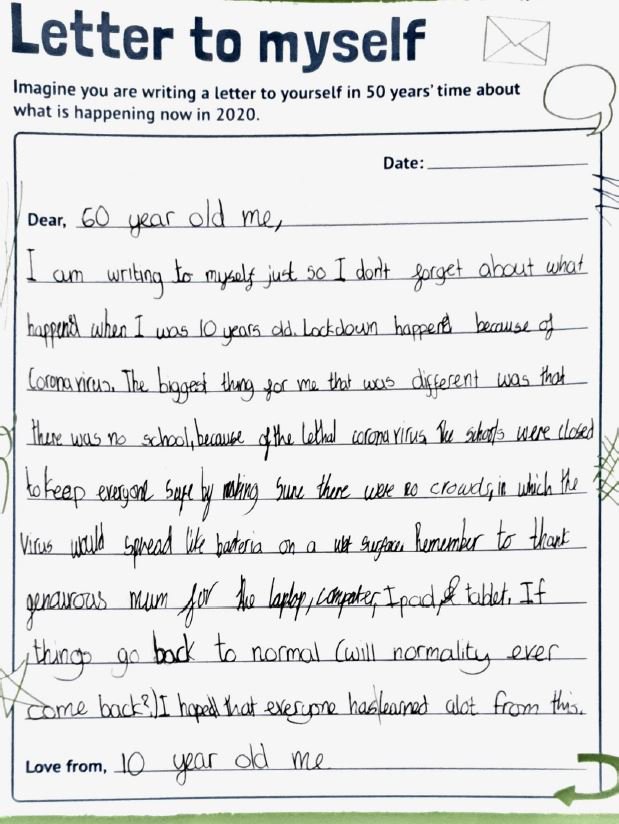 Letter to myself
Imagine you are writing a letter to yourself in 50 years' time about
what is happening now in 2020.
Date:
Dear, 60 year old me,
I am writing to myself just so I don't forget about what
happen'd when I was 10 years old. Lockdown happend because of
Coronavirus. The biggest thing for me that was different was that
there was no school, because of the lethal corona virus. The schools were closed
to keep everyone safe by making sure there were no crowds, in which the
virus would spread like bacteria on a wet surface. Remember to thank
genourous mum for the laptop, computer, Ipad, & tablet. If
things go back to normal (will normality ever
come back?) I hoped that everyone has learned alot from this.
Love from, 10 year old me